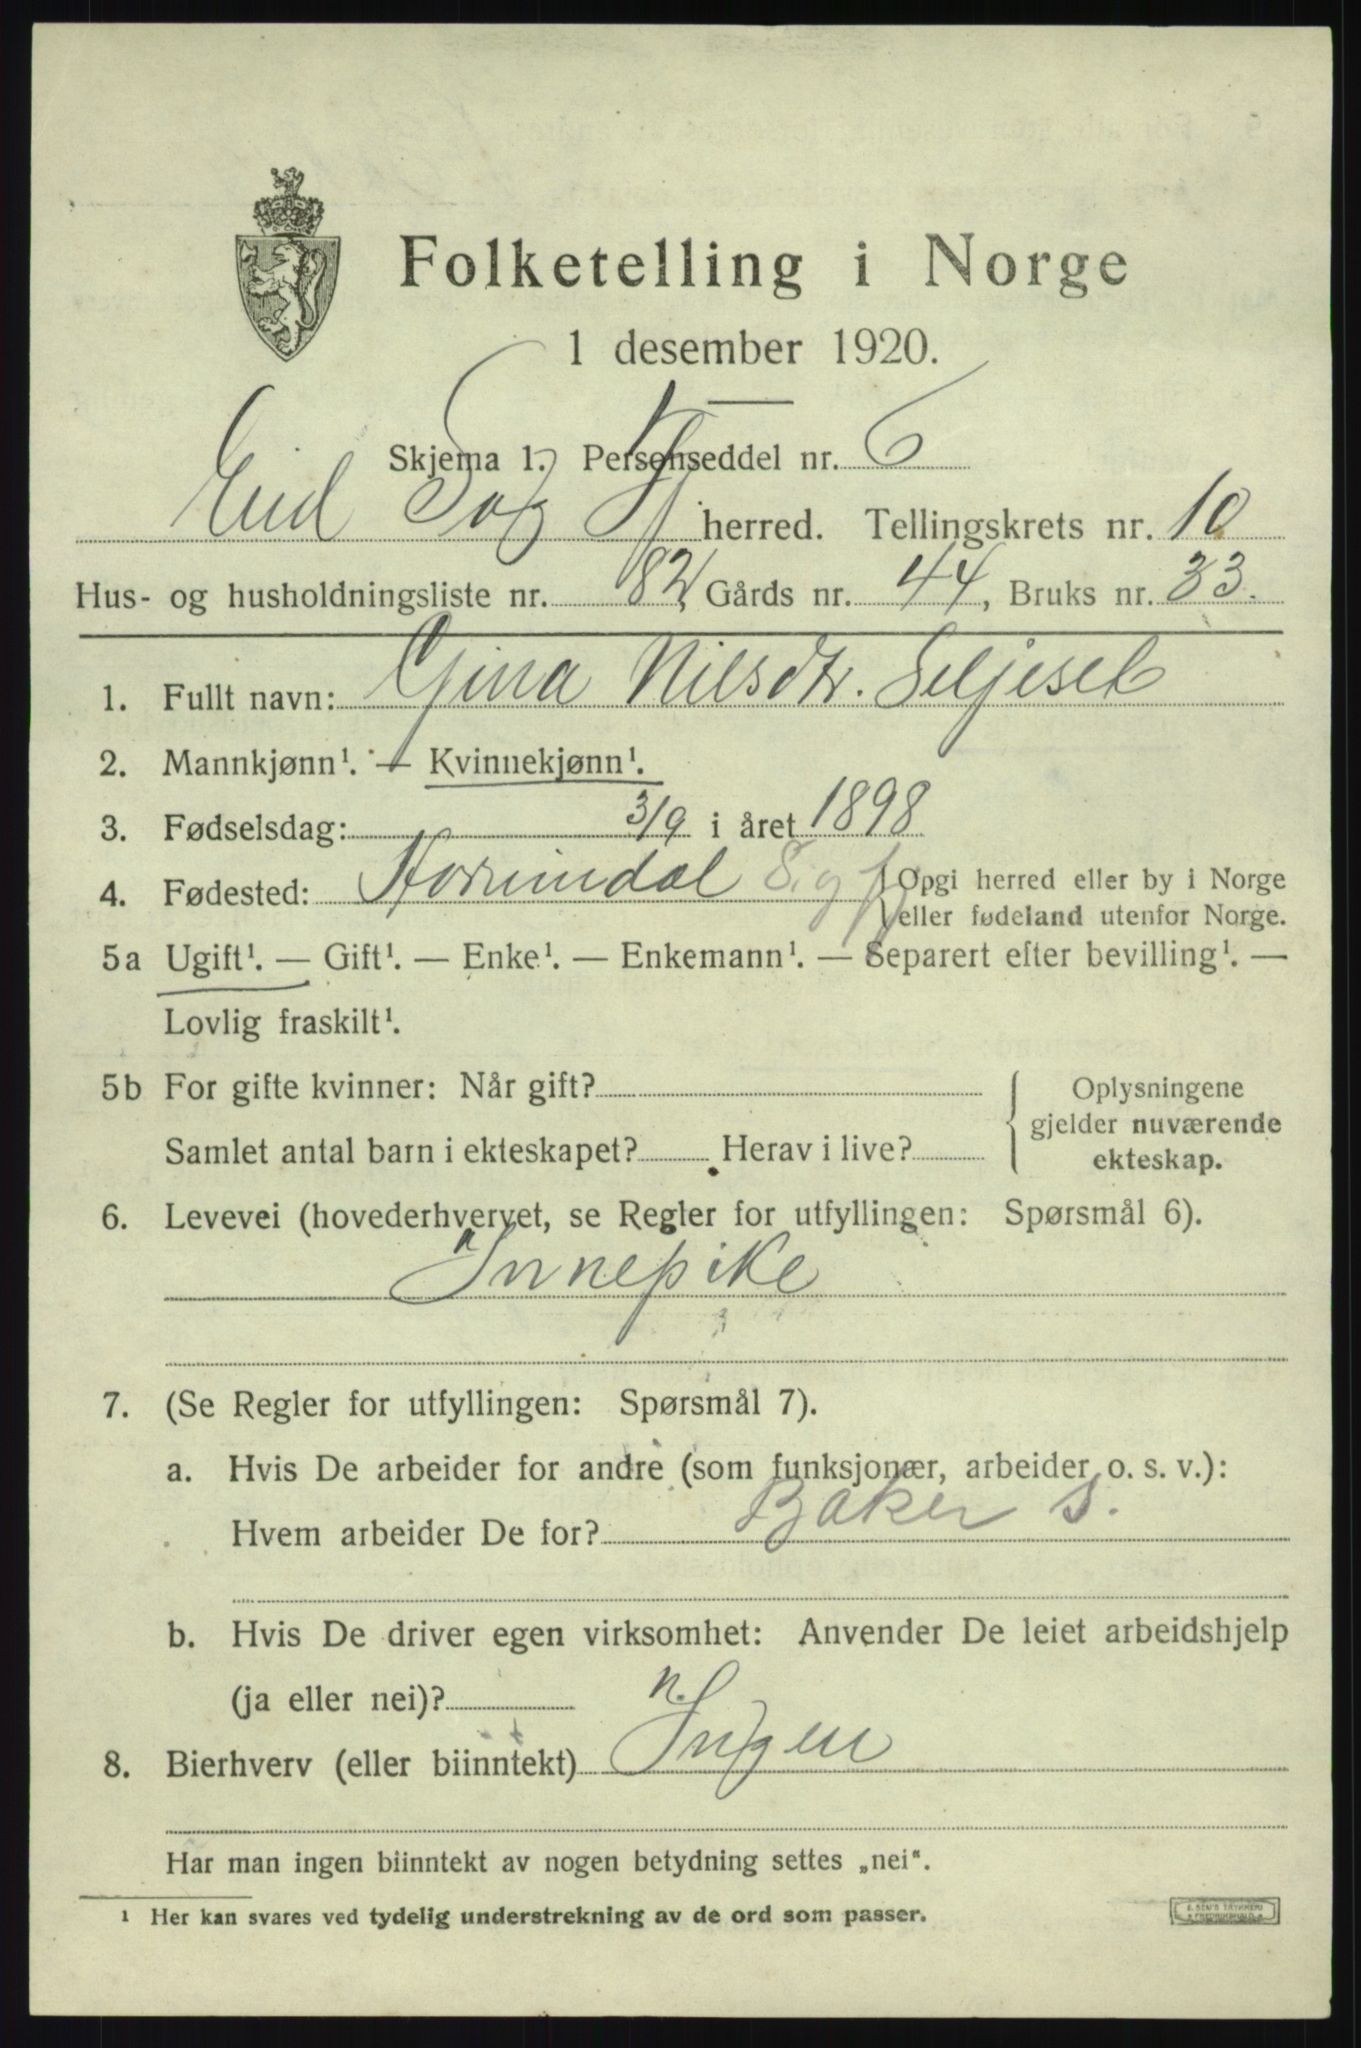 Folketelling i Norge
1 desember 1920.
Skjema 1. Personseddel nr. 6
Eid S og Fj herred. Tellingskrets nr. 10
Hus- og husholdningsliste nr. 82, Gårds nr. 44, Bruks nr. 33.
1. Fullt navn: Gina Nilsdtr. Seljeset
2. Mannkjønn¹. — Kvinnekjønn¹.
3. Fødselsdag: 3/9 i året 1898
4. Fødested: Hornindal S. og Fj
Opgi herred eller by i Norge
eller fødeland utenfor Norge.
5a Ugift¹. — Gift¹. — Enke¹. — Enkemann¹. — Separert efter bevilling¹. —
Lovlig fraskilt¹.
5b For gifte kvinner: Når gift?
Samlet antal barn i ekteskapet? Herav i live?
Oplysningene
gjelder nuværende
ekteskap.
6. Levevei (hovederhvervet, se Regler for utfyllingen: Spørsmål 6).
Innepike
7. (Se Regler for utfyllingen: Spørsmål 7).
a. Hvis De arbeider for andre (som funksjonær, arbeider o. s. v.):
Hvem arbeider De for? Baker S.
b. Hvis De driver egen virksomhet: Anvender De leiet arbeidshjelp
(ja eller nei)?
n.
8. Bierhverv (eller biinntekt) Ingen
Har man ingen biinntekt av nogen betydning settes „nei“.
¹ Her kan svares ved tydelig understrekning av de ord som passer.